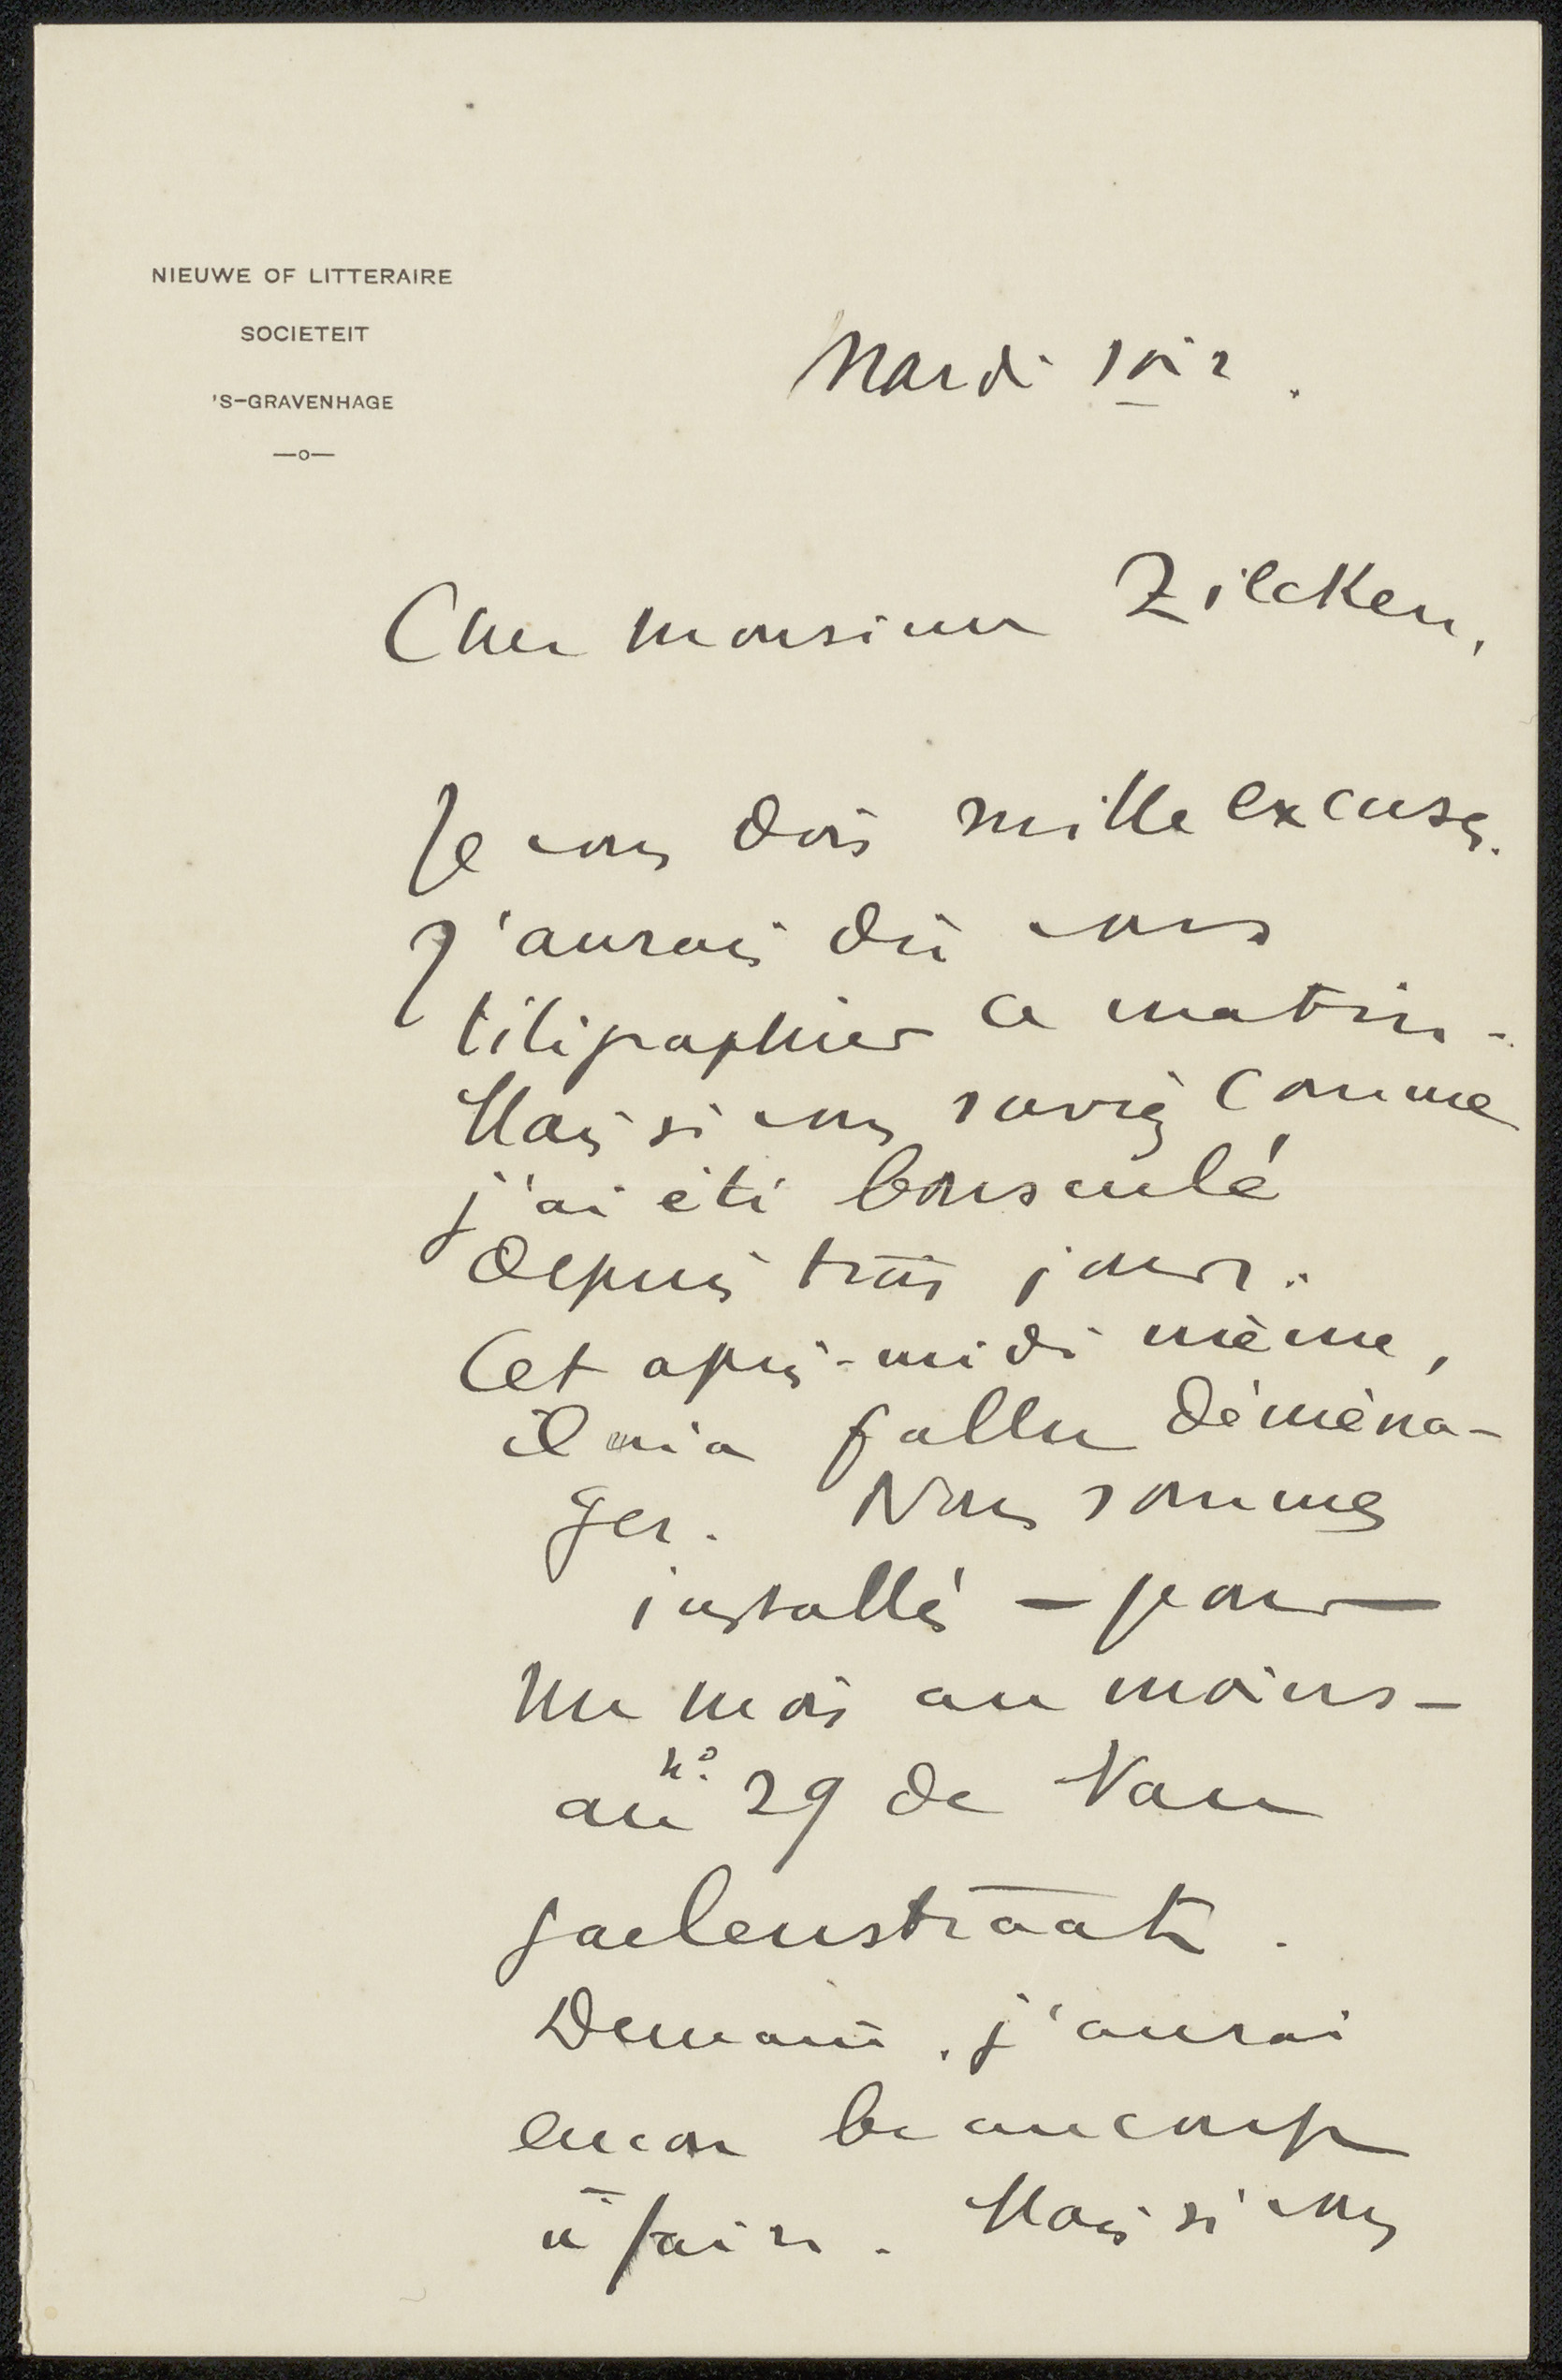 NIEUWE OF LITTERAIRE
SOCIETEIT
'S-GRAVENHAGE
Mardi soir.
Cher monsieur Zilcken,
Je vous dois mille excuses.
J'aurais dû vous
téligraphier ce matin.
Mais si vous saviez comme
j'ai été bousculé
depuis trois jours.
Cet après-midi même,
il m'a fallu déména-
ger. Nous sommes
installés – pour
un mois au moins –
au n° 29 de Van
Galenstraat.
Demain, j'aurai
encore beaucoup
à faire. Mais si vous